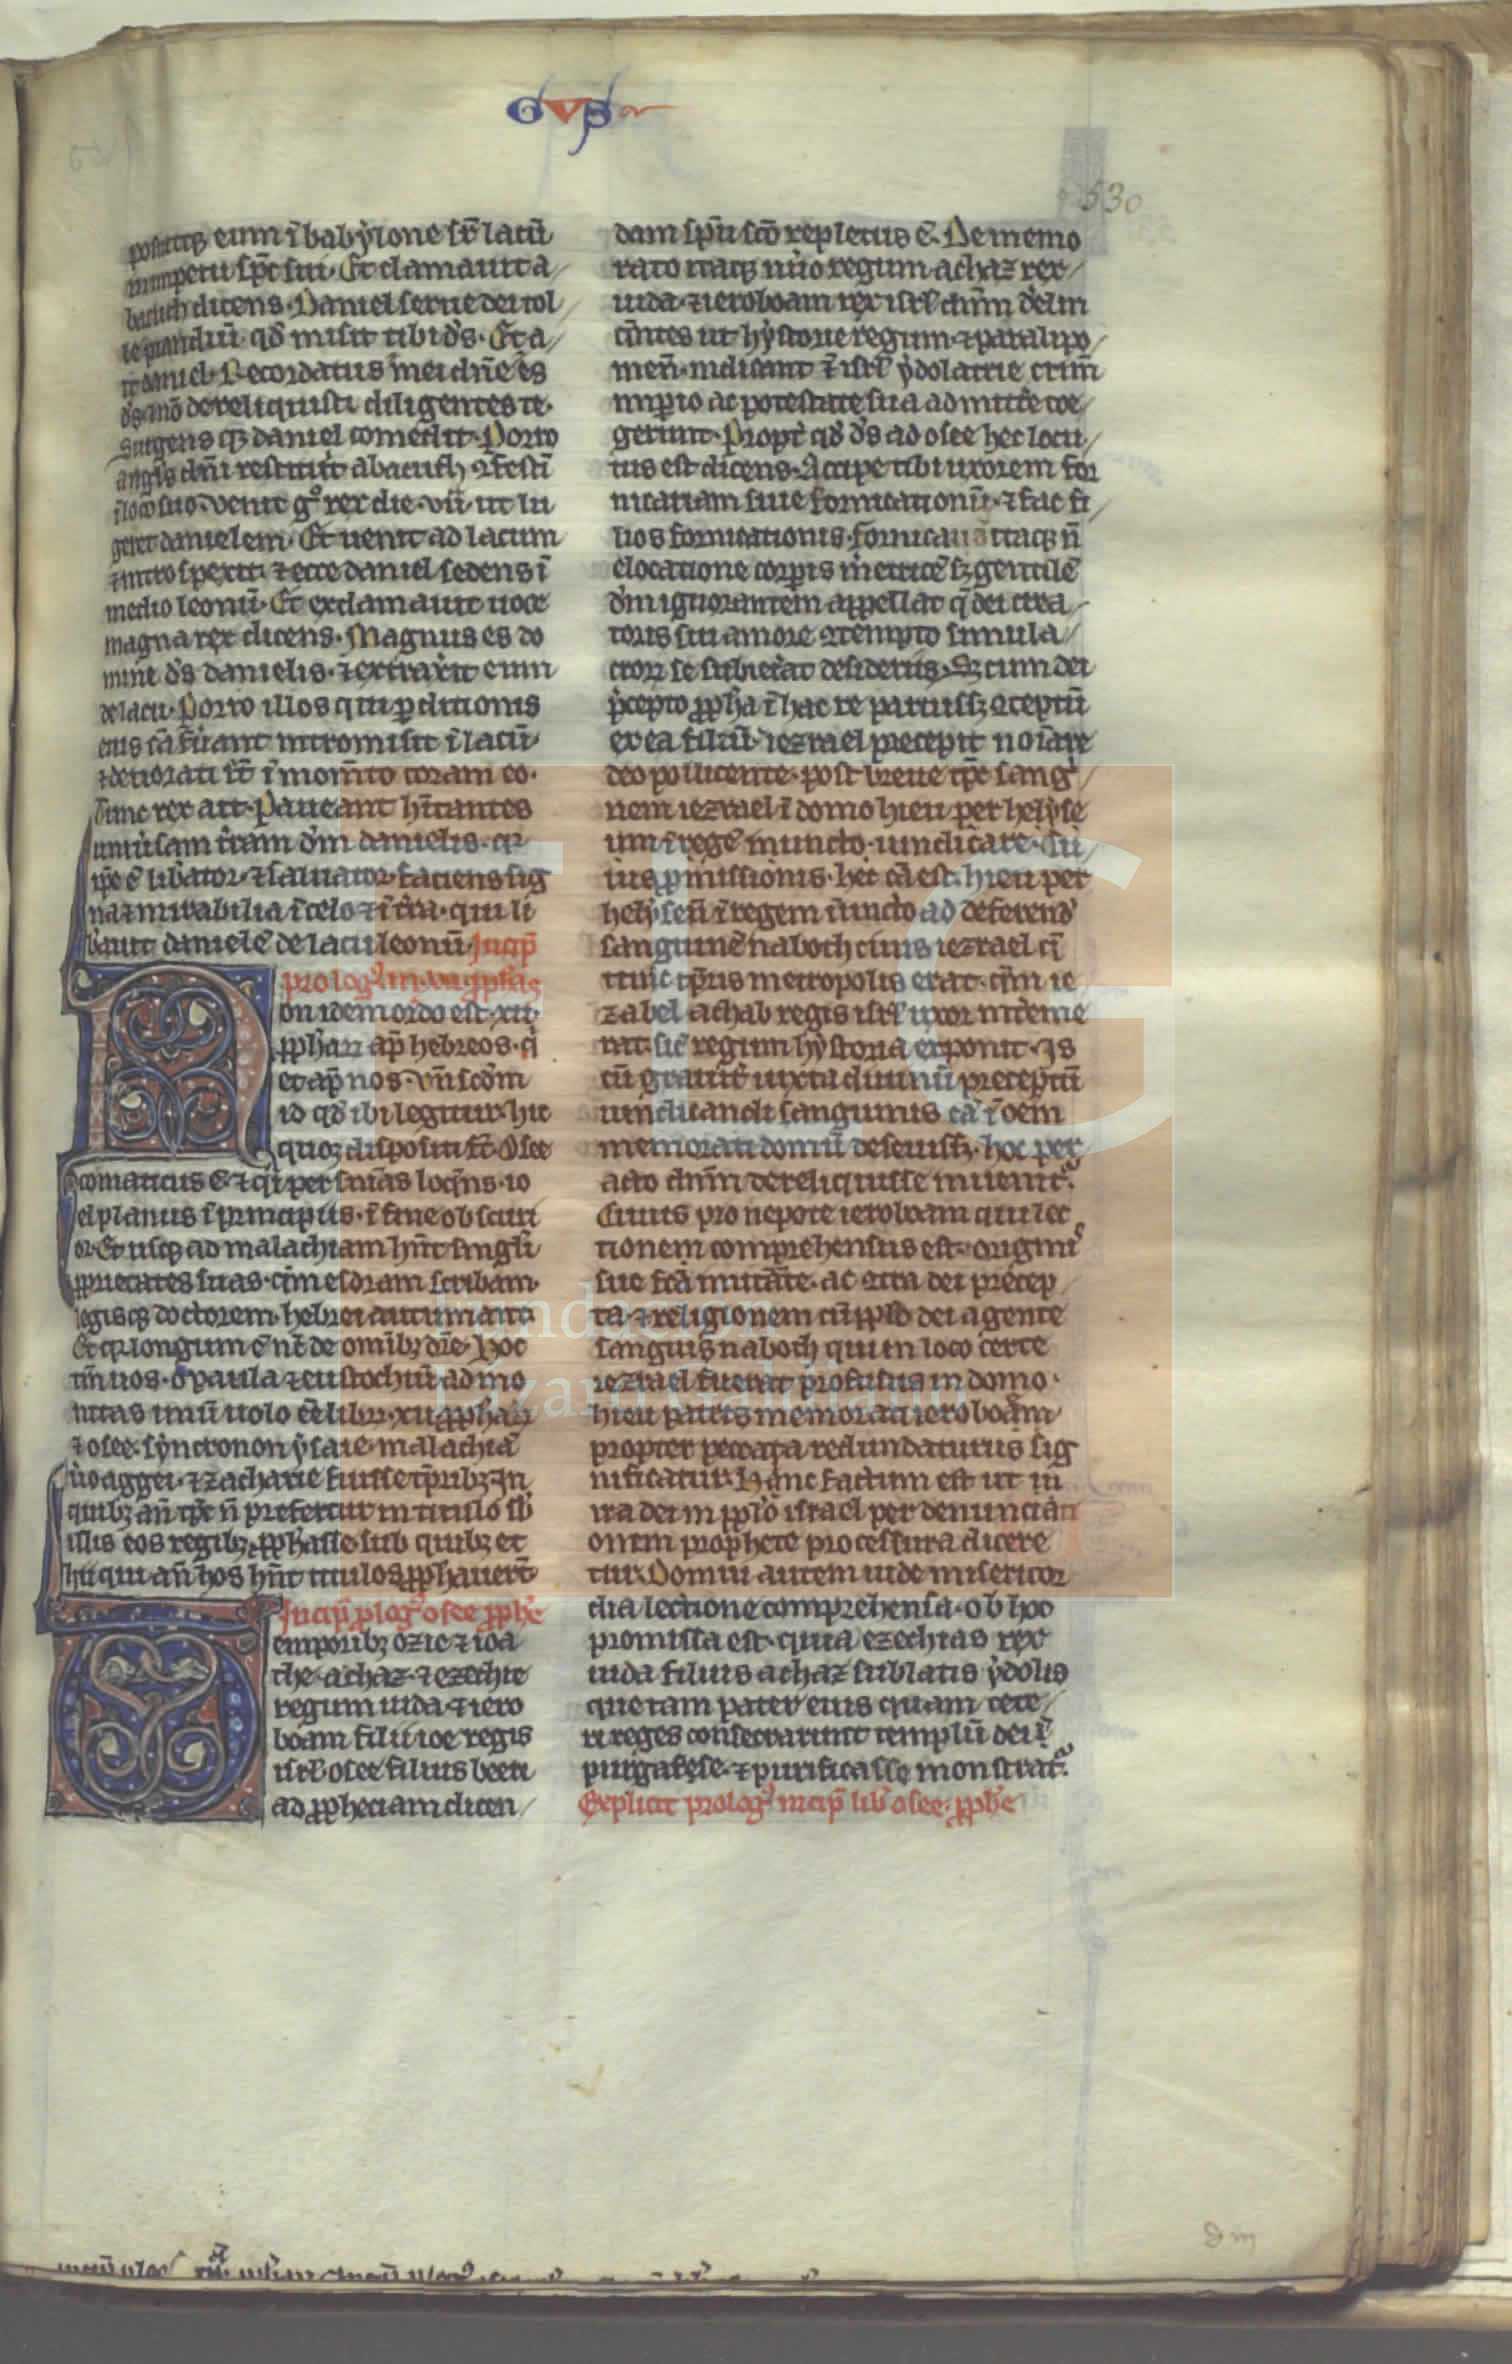 GVS
530
posuitq; eum ī babẏlone sr̄ lacū
in impetu sp̄c sui. Et clamauit a/
bacuch dicens. Daniel serue dei tol/
le prandiū. qd̓ misit tibi d̓s. Et a/
it daniel. Recordatus mei dn̄e es
d̓s. ⁊ nō dereliquisti diligentes te.
Surgens q; daniel comedit. Porro
angl̓s dn̄i restituit abacuch ꝯfesti
ī loco suo. venit gͦ rex die. vii. ut lu
geret danielem. Et uenit ad lacum
⁊ intro spexit. ⁊ ecce daniel sedens ī
medio leonū. Et exclamauit uoce
magna rex dicens. Magnus es do
mine d̓s danielis. ⁊ extraxit eum
de lacu. Porro illos qui ꝑditionis
eius cā fuant intromisit ī lacū.
⁊ deuorati st̄ ī mom̄to coram eo.
Tunc rex ait. Paueant hītantes
uniuͥsam tr̄am d̓m danielis. qr
ip̄e ē libator. ⁊ saluator. faciens sig
na ⁊ mirabilia ī celo ⁊ ī tr̄a. qui li
b̓auit danielē de lacu leonū. Incip̄
prologꝰ in. xii. ꝓph̓as
Non idem ordo est. xii.
ꝓph̓aꝝ ap̄ hebreos. qͥ
et ap̄ nos. Vn̄ scd̓m
id qd̓ ibi legitur. hic
quoꝫ dispositi st̄. Osee
comaticus ē. ⁊ qͥ per sn̄ias loqn̄s. io
el planus ī principiis. ī fine obscuri
or. Et usq; ad malachiam hn̄t singl̓i
ꝓprietates suas. qͥm esdram scribam.
legisq; doctorem. hebrei autumant.
Et qr longum ē nc̄ de omīb; dic̄e. Hoc
tm̄ uos. o paula ⁊ eustochiū ad mo
nitas unū uolo ēē librꝝ. xii. ꝓph̓aꝝ
⁊ osee. sẏncronon ẏsaie. malachiā
ùo aggei. ⁊ zacharie fuisse tp̄rib;. In
quib; aū tp̄c n̄ prefertur in titulo sb̓
illis eos regib; ꝓph̓asse. sub quib; et
hii qui an̄ hos hn̄t titulos ꝓph̓auerūt
Incip̄ ꝓlogꝰ osee ꝓph̓e
Temporib; ozie ⁊ ioa
the. achaz. ⁊ ezechie
regum iuda. ⁊ iero
boam filii ioe regis
isrl̓. osee filius beeri
ad ꝓpheciam dicen/
dam sp̄u scō repletus ē. De memo
rato itaq; nūo regum. achaz rex/
iuda. ⁊ ieroboam rex isrl̓ dn̄m d̓elin
qn̄tes ut hẏstorie regum. ⁊ paralipo/
men̄. indicant ī isrl̓ ẏdolatrie crim̄
imꝑio ac potestate sua admitte coe/
gerunt. Propt̓ qd̓ d̓s ad osee hec locu/
tus est dicens. Accipe tibi uxorem for
nicariam siue fornicationū. ⁊ fac fi/
lios fornicationis. fornicariā itaq; n̄
elocatione corꝑis m̓etricē sꝫ gentilē
d̓m ignorantem appellat q̄ dei crea/
toris sui amore ꝯtempto simula/
croꝝ se subiecͥat desideriis. Sꝫ cum dei
p̓cepto ꝓph̓a ī hac re paruissꝫ ꝯceptū
ex ea filiū. iezrael precepit noīare
deo pollicente. post breue tp̄c sangͥ/
nem iezrael ī domo hieu per helẏse
um ī regē inuncto. uindicare. Cū/
ius ꝓmissionis. hec cā est. hieu per
helẏseū ī regem ūncto ad defend̓
sanguinē naboth ciuis iezrael qͥ
tūc tp̄ris metropolis erat. qͥm ie
zabel achab regis isrl̓ uxor interime
rat. sic̄ regum hẏstoria exponit. Is
cū grauit̓ iuxta diuinū preceptū
uindicandi sanguinis cā ī oēm
memorati domū deseuissꝫ. hoc per
acto dn̄m dereliquisse inuenitͬ.
Cuius pronepote ieroboam qui lec
tionem comprehensus est. originis
sue fc̄a imitāte. ac ꝯtra dei precep/
ta. ⁊ religionem cū ꝓpl̓o dei agente
sanguis naboth qui in loco certe
iezrael fuerat profusus in domo.
hieu patris memorati ieroboam
propter peccata redundaturus sig
nificatur. Hinc factum est ut in
ira dei in ꝓpl̓o israel per denunciati
onem prophete processura dicere
tur. Domui autem iude misericor
dia lectione comprehensa. ob hoc
promissa est. quia ezechias rex
iuda filius achaz sublatis ẏdolis
que tam pater eius quam cete/
ri reges consecrarunt templū dei ī
purgasse. ⁊ purificasse monstratͬ.
Explicit prologꝰ incip̄ lib̓ osee. ꝓph̓e
Fundación
Lázaro Galdiano